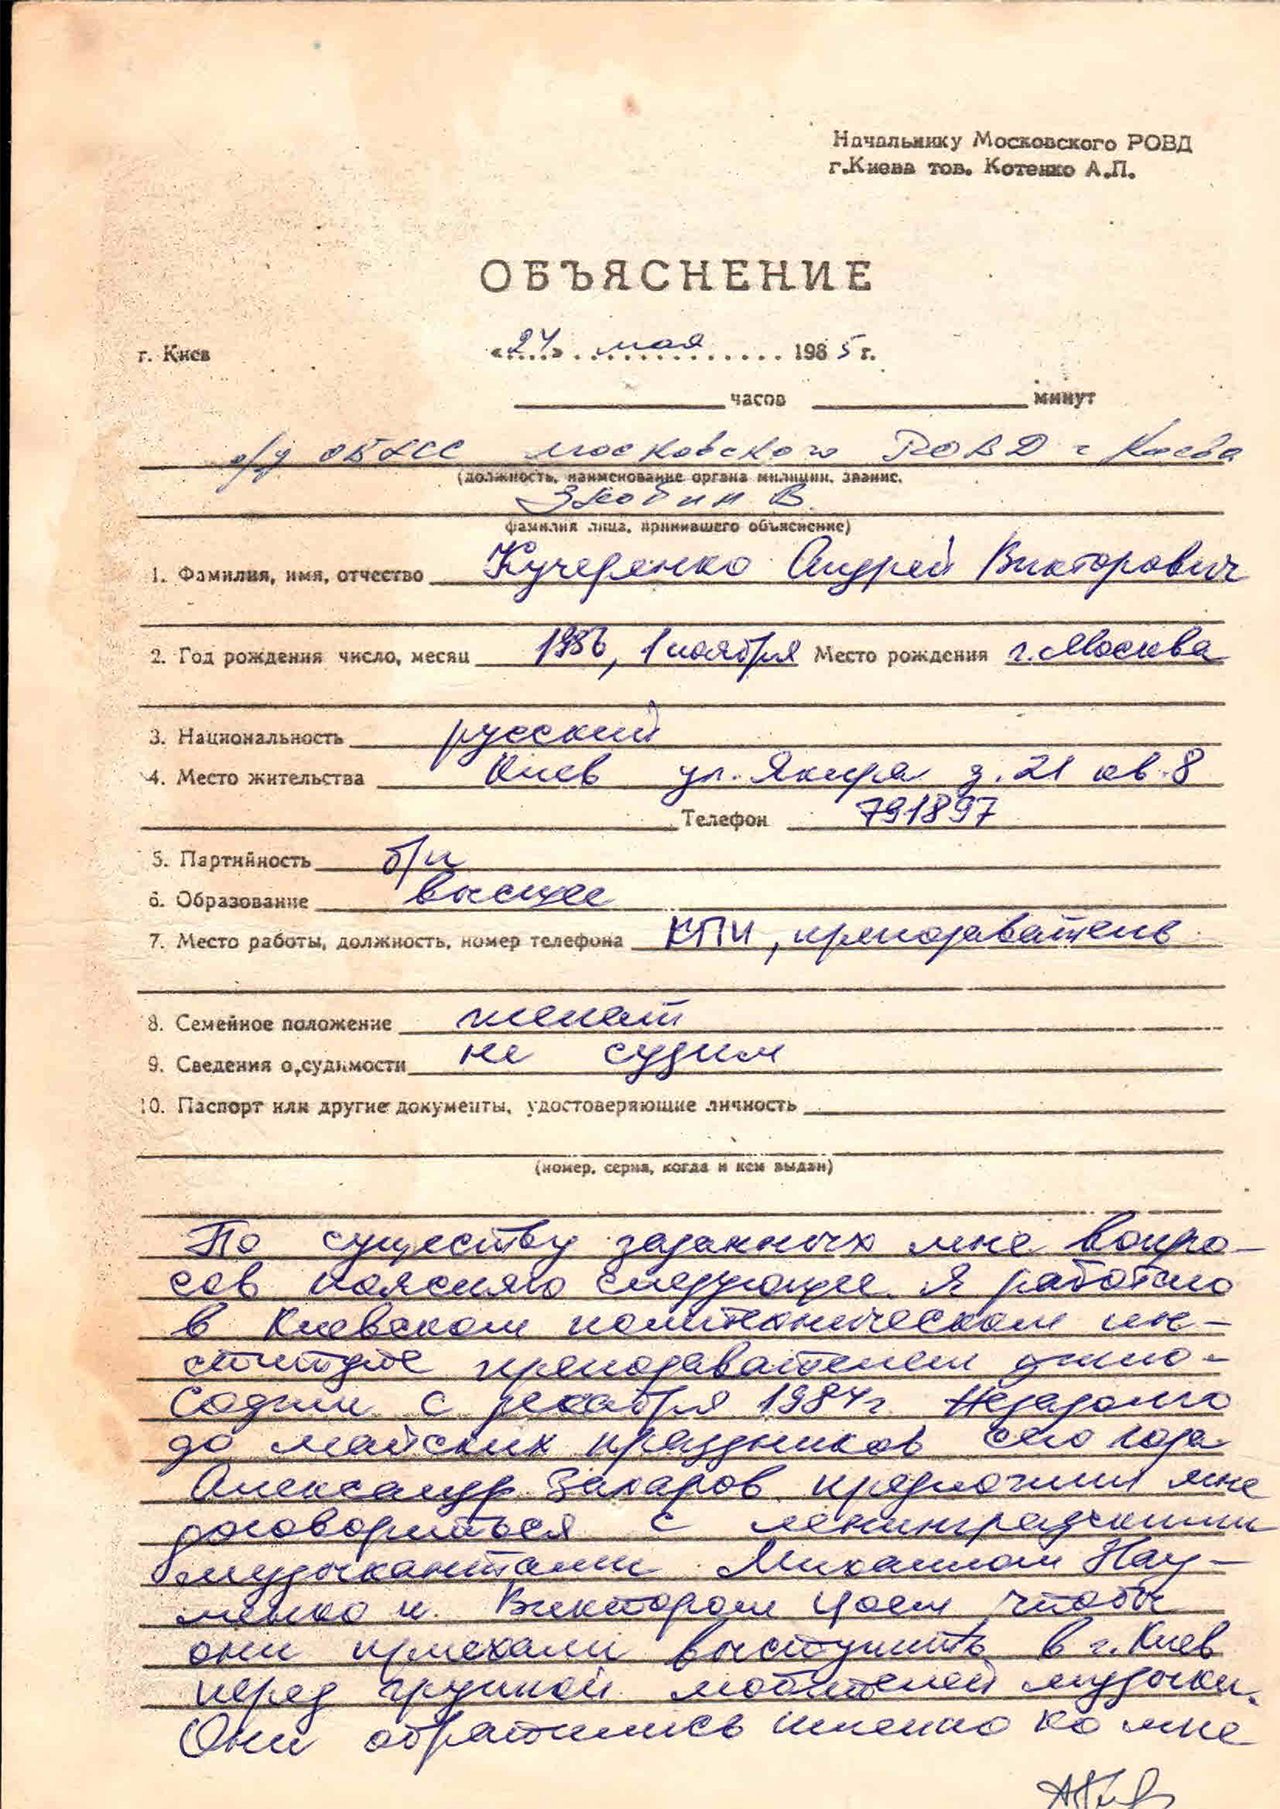 Начальнику Московского РОВД
г.Киева тов. Котенко А.П.
ОБЪЯСНЕНИЕ
г. Киев «24» мая 1985 г.
часов минут
о/у ОБХСС Московского РОВД г Киева
(должность, наименование органа милиции, звание,
В.
фамилия лица, принявшего объяснение)
1. Фамилия, имя, отчество Кучеренко Андрей Викторович
2. Год рождения число, месяц 1956, 1 ноября Место рождения г. Москва
3. Национальность русский
4. Место жительства Киев ул. Якира д. 21 кв. 8
Телефон 791897
5. Партийность б/п
6. Образование высшее
7. Место работы, должность, номер телефона КПИ, преподаватель
8. Семейное положение женат
9. Сведения о судимости не судим
10. Паспорт или другие документы, удостоверяющие личность
(номер, серия, когда и кем выдан)
По существу заданных мне вопро-
сов поясняю следующее. Я работаю
в Киевском политехническом ин-
ституте преподавателем фило-
софии с декабря 1984 г. Незадолго
до майских праздников сего года
Александр Захаров предложил мне
договориться с ленинградскими
музыкантами Михаилом Нау-
менко и Виктором Цоем, чтобы
они приехали выступить в г. Киев
перед группой любителей музыки.
Они обратились именно ко мне